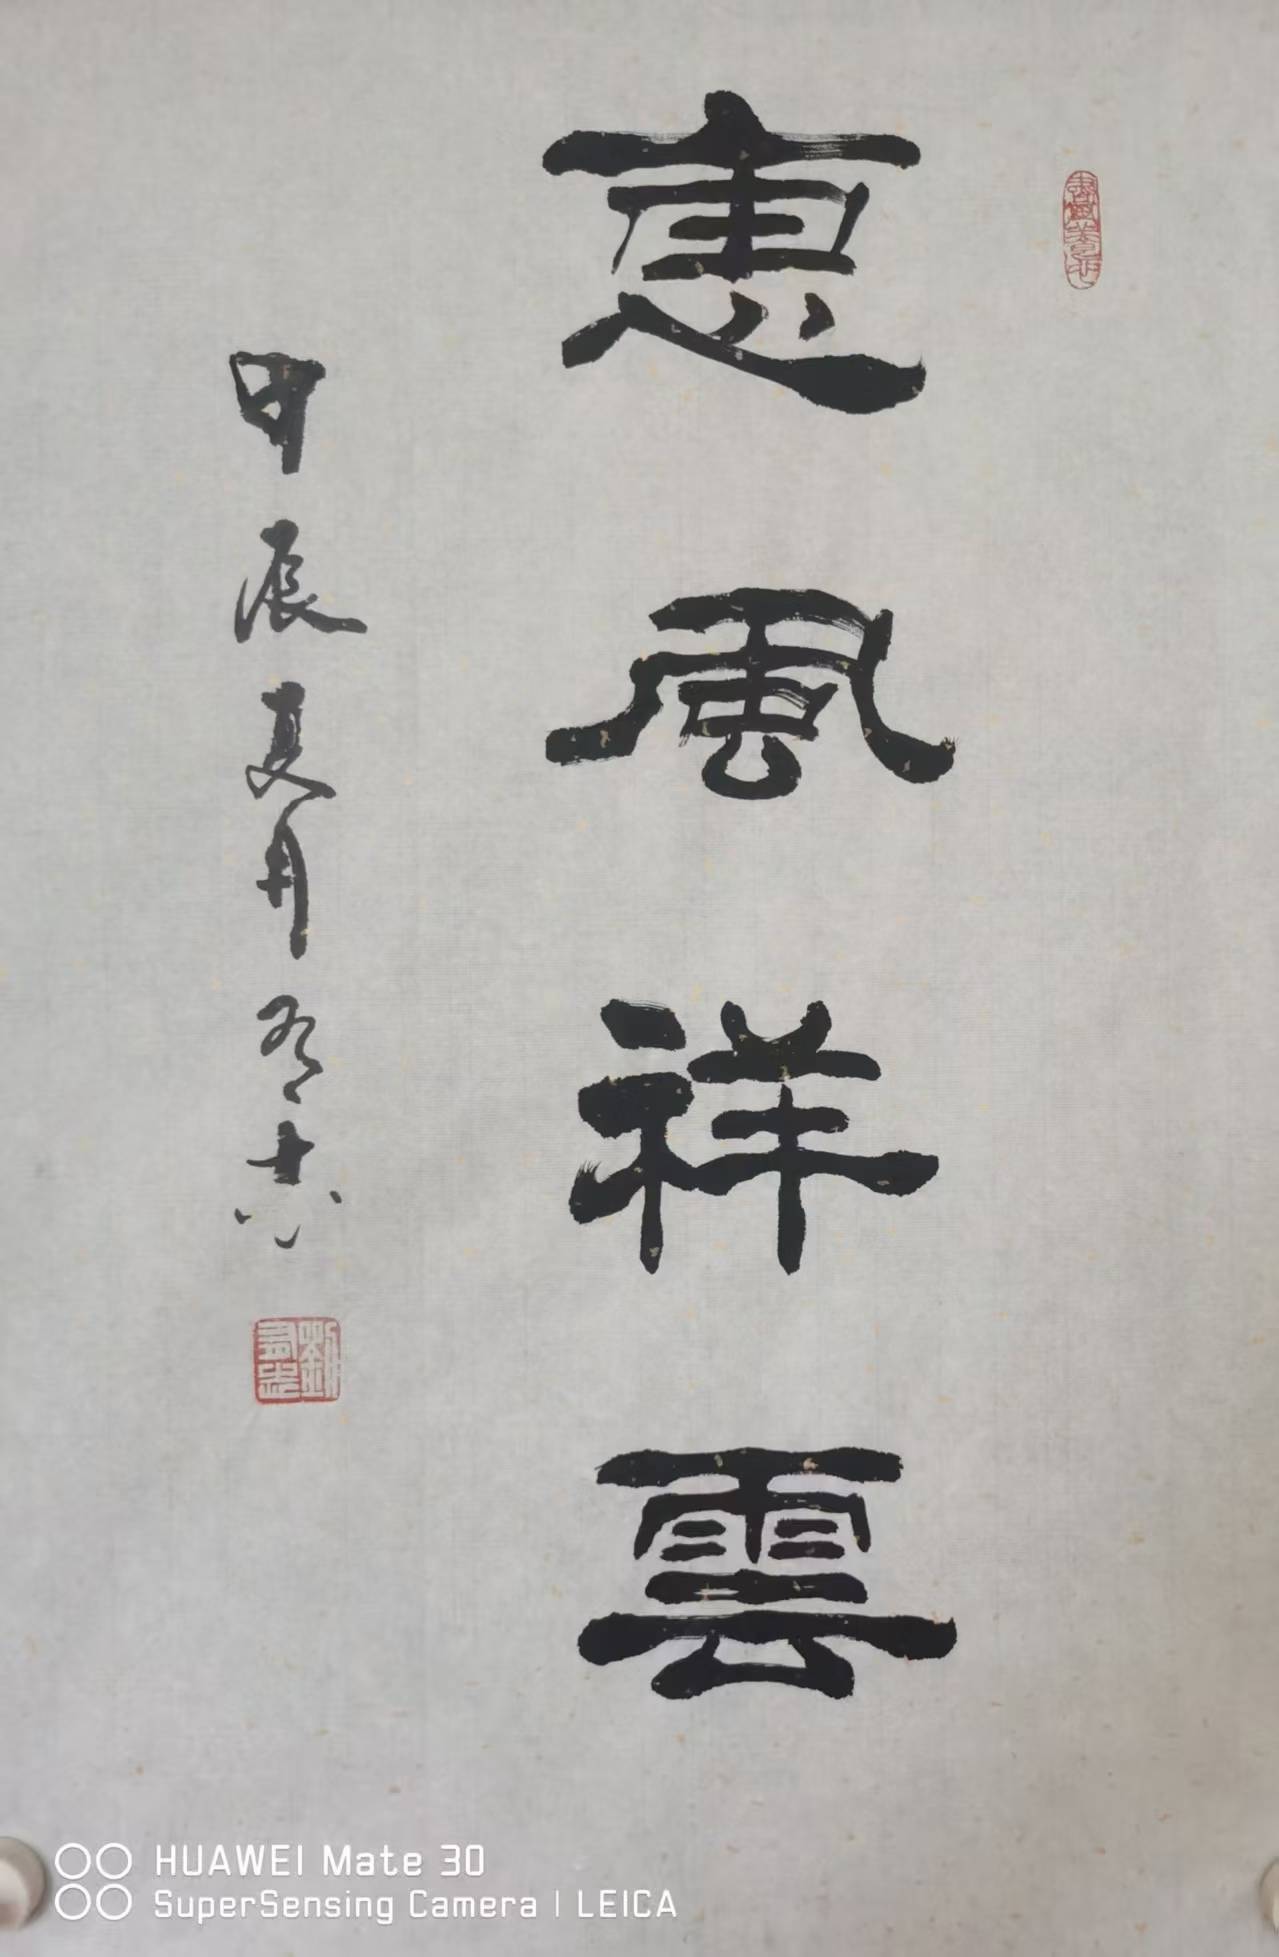 惠風祥雲
甲辰夏月有志
劉有志
HUAWEI Mate 30
SuperSensing Camera | LEICA